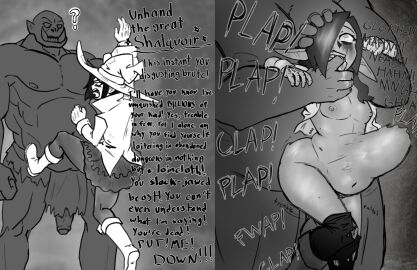 ?
Unhand
the great
Shalquoir
This instant you
disgusting brute!
I'll have you know I've
vanquished MILLIONS of
your kind! Yes, tremble
in fear for I alone am
why you find yourself
loitering in abandoned
dungeons in nothing
but a loincloth!
You slack-jawed
beast! You can't
even understand
what I'm saying!
You're dead!
PUT! ME!
DOWN!!!
PLAP!
PLAP!
CLAP!
PLAP!
FWAP!
CLAP!
HAHA